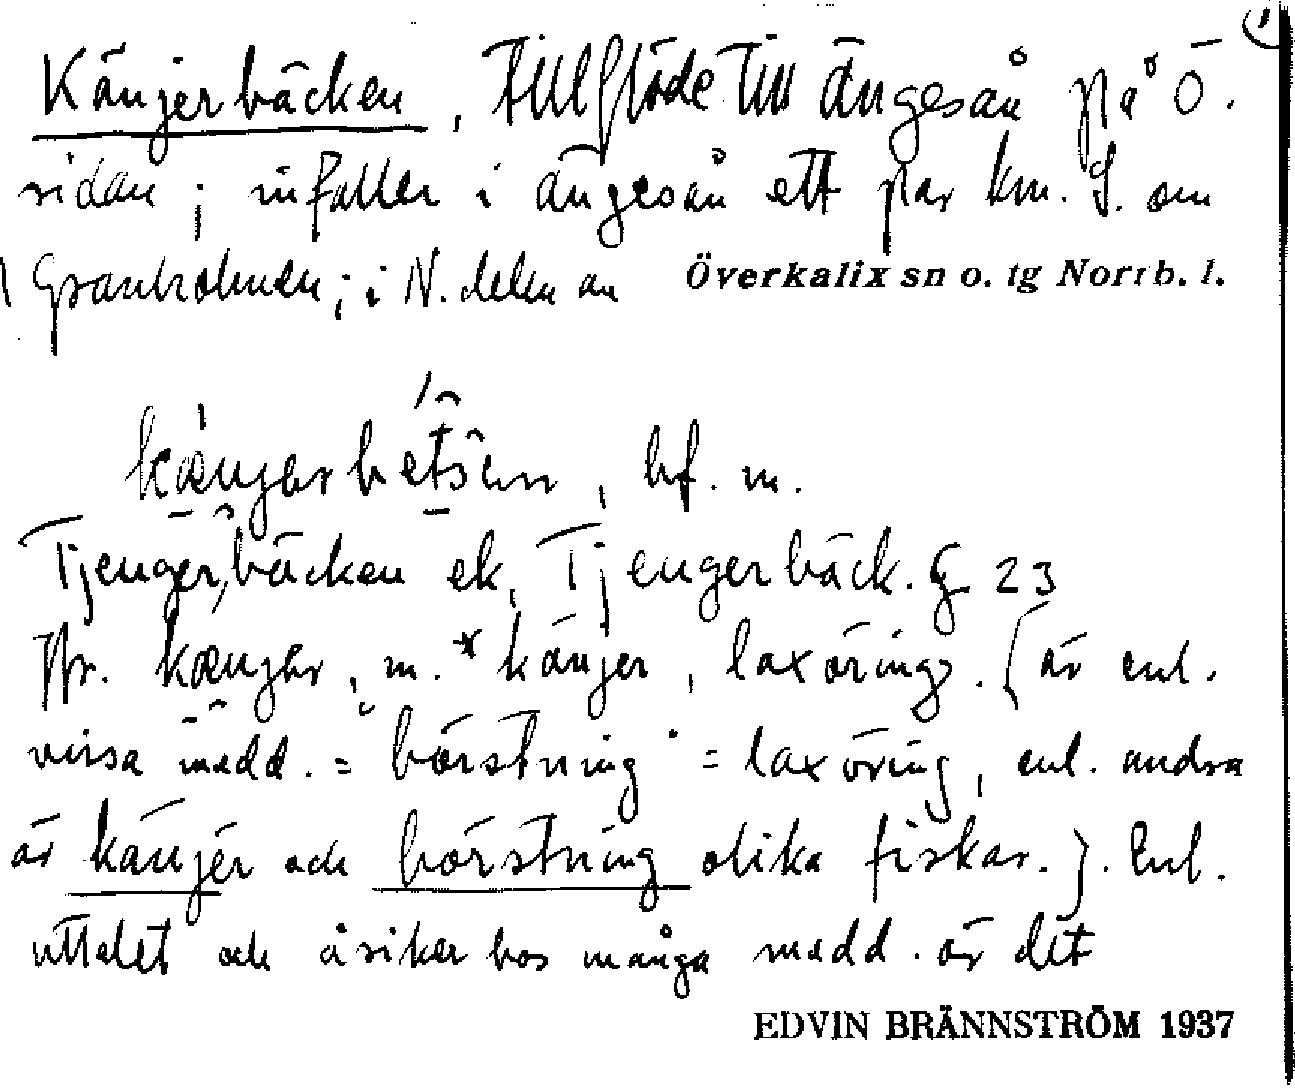 1
Känjerbäcken, tillflöde till Ängesån på Ö.
sidan; infaller i Ängesån ett par km. S. om
Granholmen; i N. delen av Överkalix sn o. tg Norrb. l.
kænjərbetsen, bf. m.
Tjengerbäcken ek, Tjengerbäck. G 23
ffr. kænjər, m. *känjer, laxöring. (är enl.
vissa medd. = "börstning" = laxöring, enl. andra
är känjer och börstning olika fiskar.). Enl.
uttalet och åsikter hos många medd. är det
EDVIN BRÄNNSTRÖM 1937